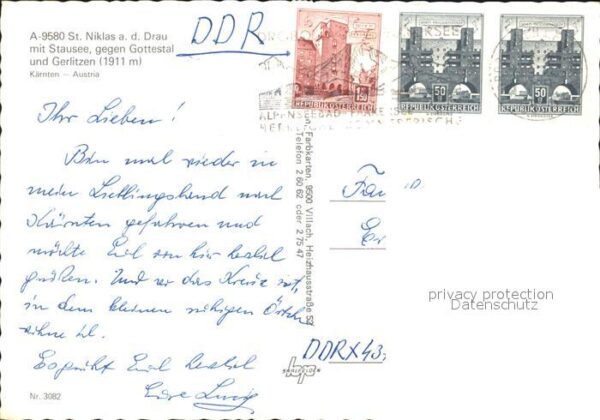 A-9580 St. Niklas a. d. Drau
mit Stausee, gegen Gottestal
und Gerlitzen (1911 m)
Kärnten — Austria
DDR
1.50
REPUBLIK ÖSTERREICH
50
REPUBLIK ÖSTERREICH
50
REPUBLIK ÖSTERREICH
ALPENSEEBAD
Ihr Lieben!
Bin mal wieder in
mein Lieblingsland nach
Kärnten gefahren und
möchte Euch von hier herzlich
grüßen. Und wo das Kreuz ist,
in dem kleinen ruhigen Örtchen
wohne ich.
Es grüßt Euch herzlich
Eure
Nr. 3082
Farbkarten, 9500 Villach, Heizhausstraße
Telefon 2 60 62 oder 2 75 47
DDR X 43
privacy protection
Datenschutz